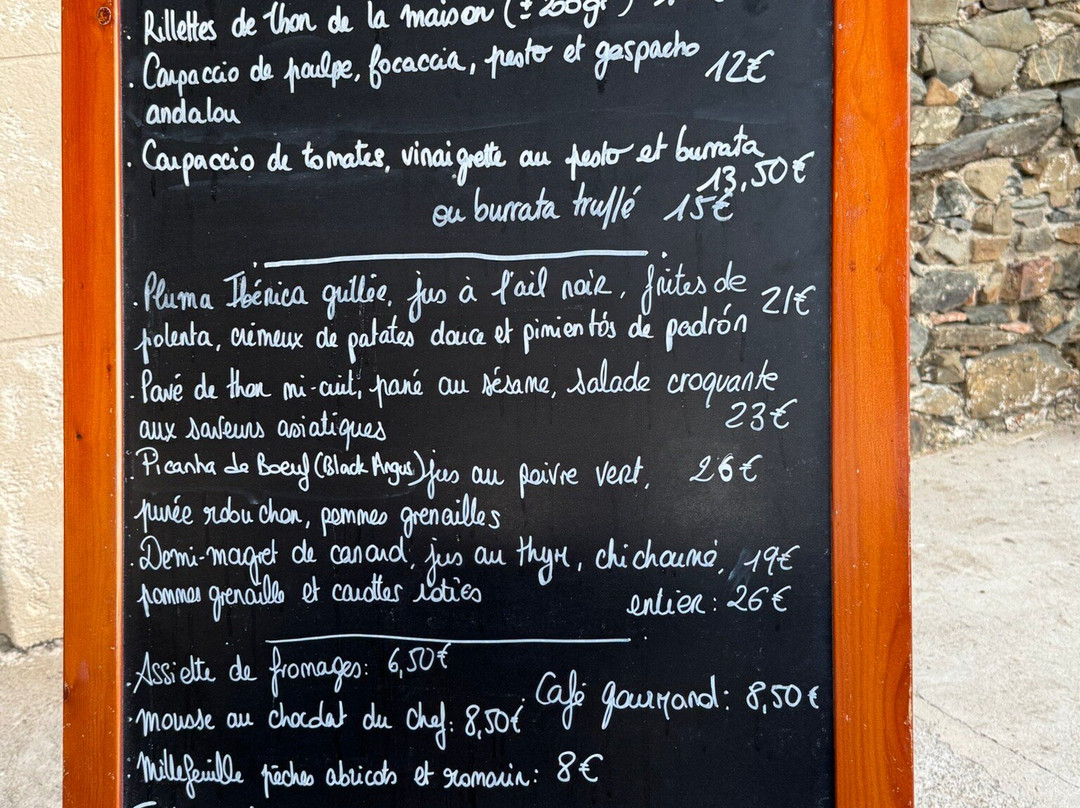 . Rillettes de thon de la maison (± 200gr)
. Carpaccio de poulpe, focaccia, pesto et gaspacho 12€
andalou
. Carpaccio de tomates, vinaigrette au pesto et burrata
13,50€
ou burrata truffé 15€
. Pluma Ibérica grillée, jus à l'ail noir, frites de 21€
polenta, crémeux de patates douce et pimientós de padrón
. Pavé de thon mi-cuit, pané au sésame, salade croquante
23€
aux saveurs asiatiques
. Picanha de Boeuf (Black Angus) jus au poivre vert, 26€
purée robuchon, pommes grenailles
. Demi-magret de canard, jus au thym, chichoumé, 19€
pommes grenaille et carottes roties entier: 26€
. Assiette de fromages: 6,50€
. Café gourmand: 8,50€
. mousse au chocolat du chef: 8,50€
. Millefeuille pêches abricots et romarin: 8€